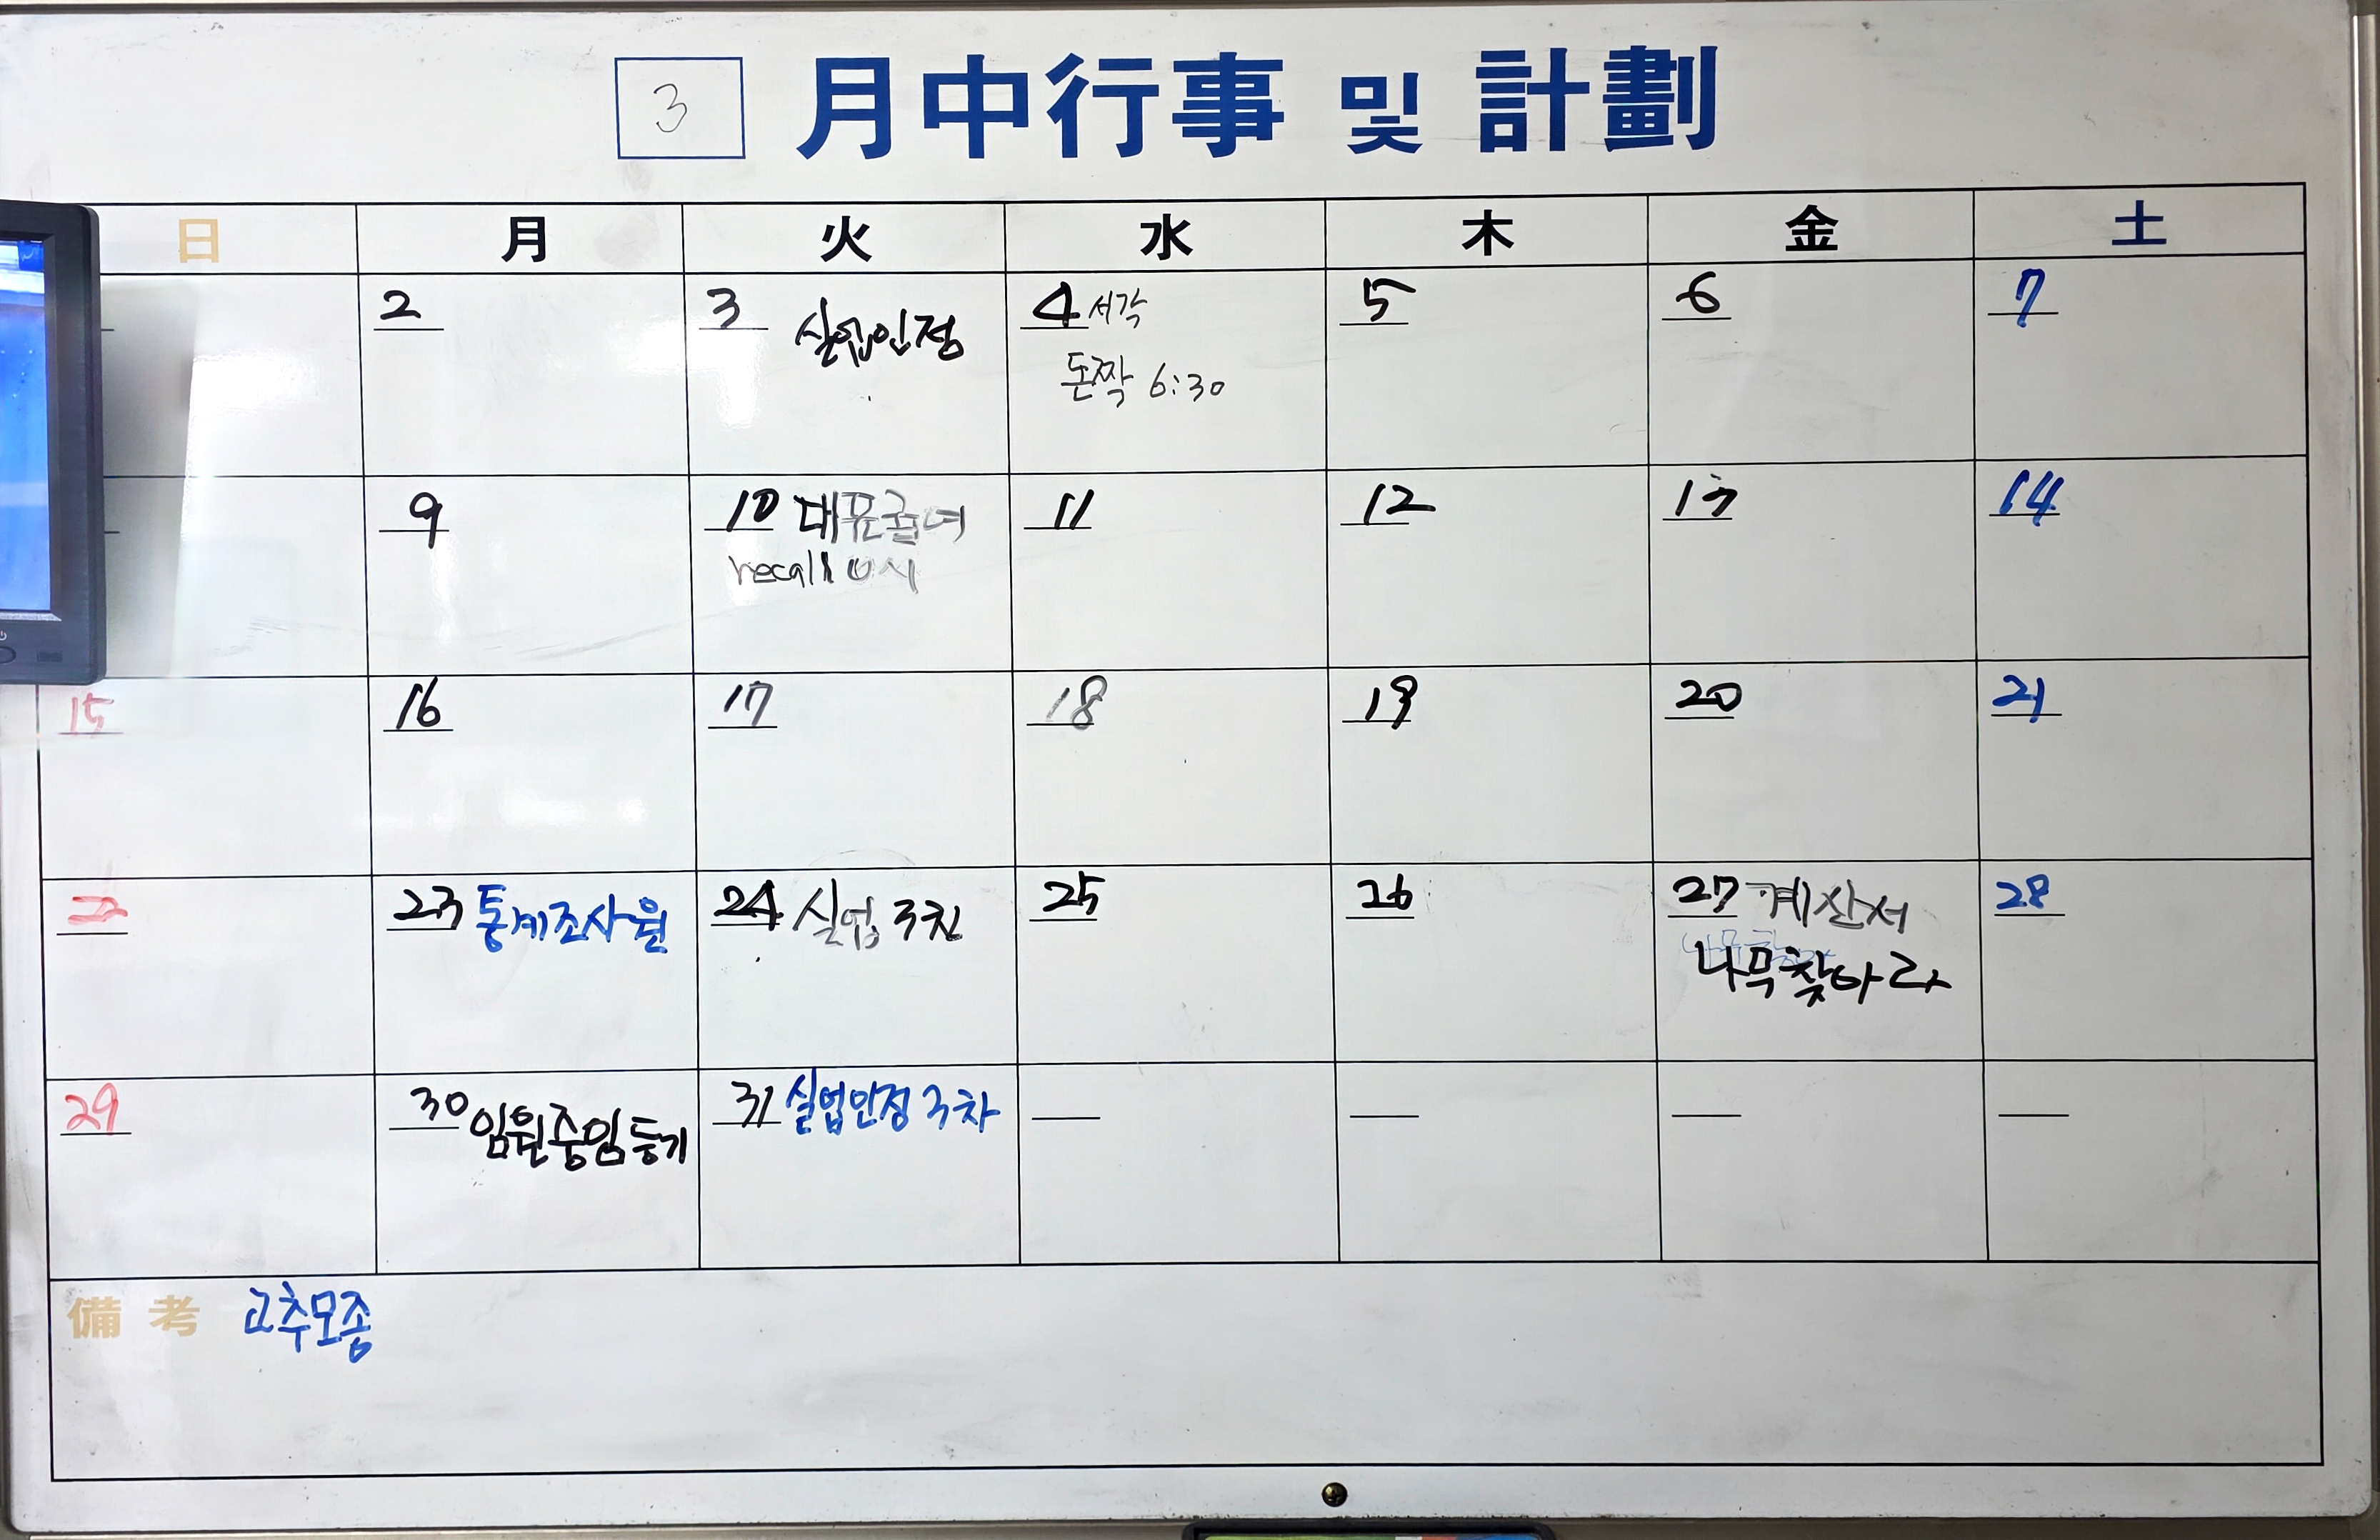 3 月中行事 및 計劃
日 月 火 水 木 金 土
2 3 실업인정 4 서각 5 6 7
돈짝 6:30
9 10 대표급여 11 12 13 14
recall 10시
15 16 17 18 19 20 21
22 23 통계조사원 24 실업 3친 25 26 27 계산서 28
나무찾아라
29 30 임원중임등기 31 실업인정 3차
備考 고추모종